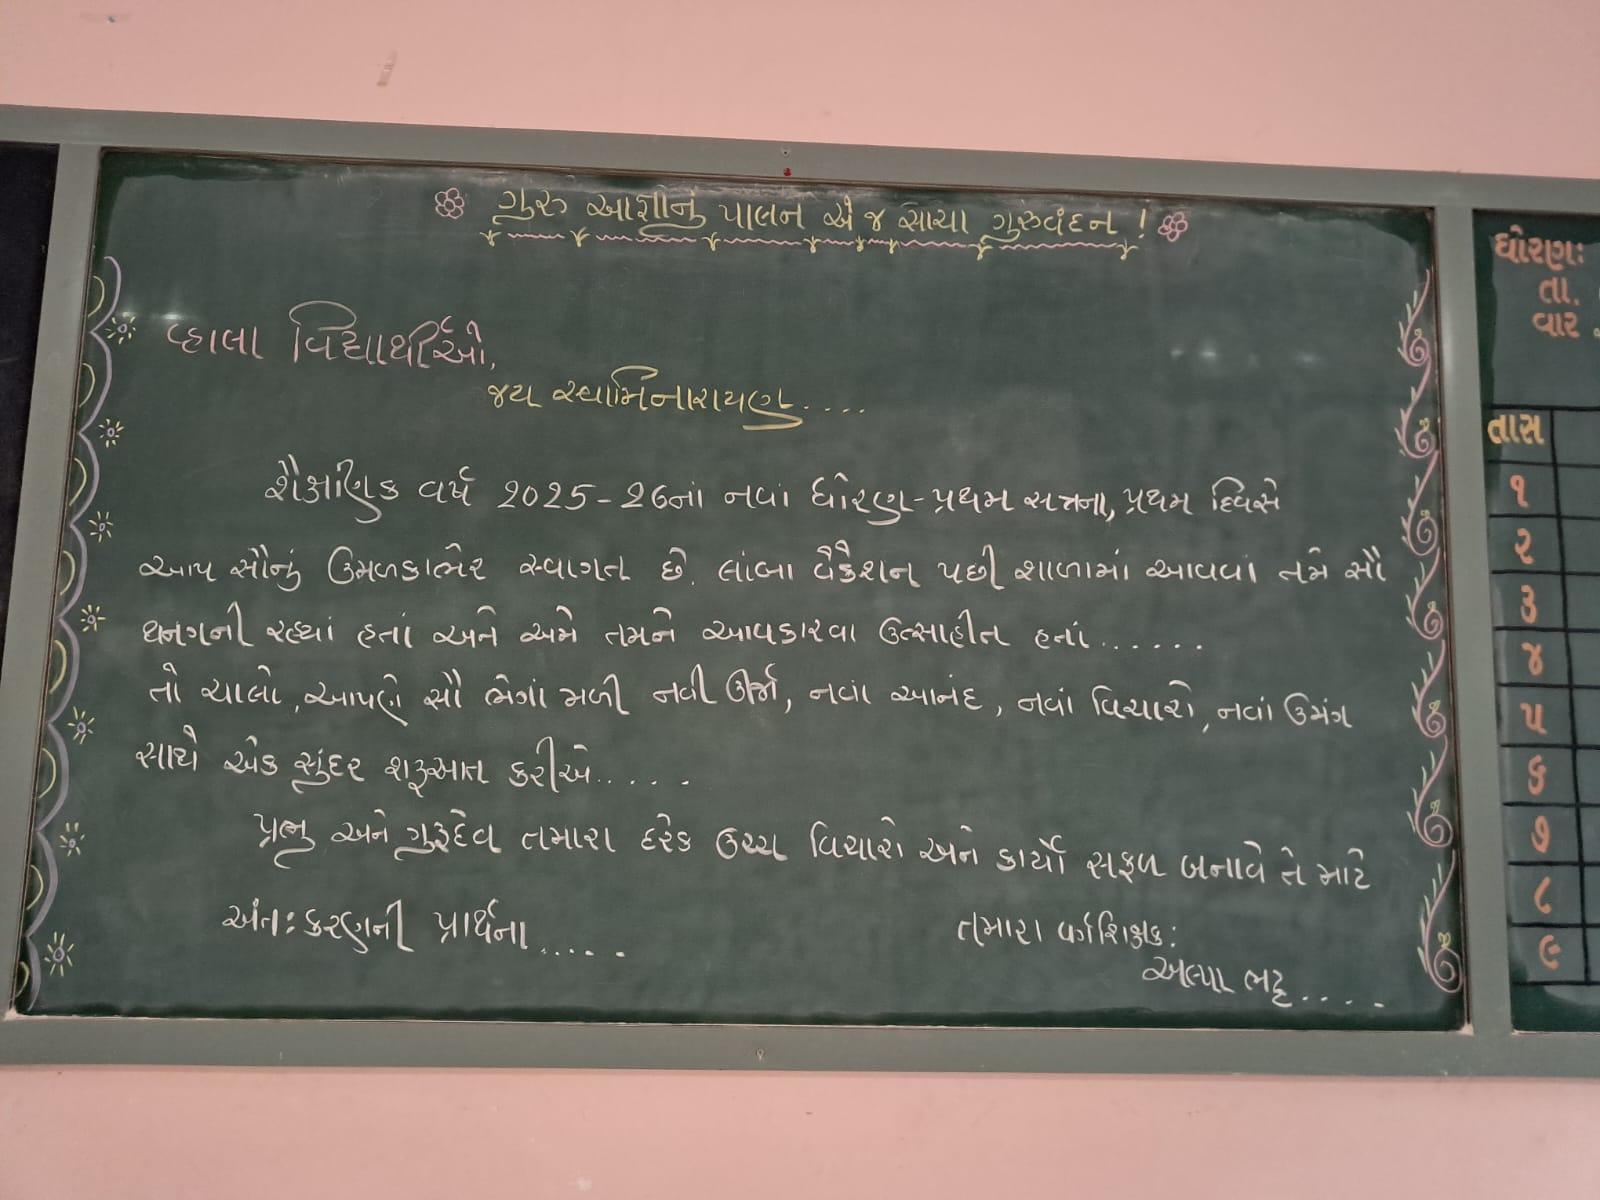 ગુરુ આજ્ઞાનું પાલન એ જ સાચા ગુરુવંદન !
વ્હાલા વિદ્યાર્થીઓ,
જય સ્વામિનારાયણ....
શૈક્ષણિક વર્ષ 2025-26નાં નવાં ધોરણ-પ્રથમ સત્રના, પ્રથમ દિવસે
આપ સૌનું ઉમળકાભેર સ્વાગત છે. લાંબા વેકેશન પછી શાળામાં આવવાં તમે સૌ
થનગની રહ્યાં હતાં અને અમે તમને આવકારવા ઉત્સાહીત હતાં......
તો ચાલો, આપણે સૌ ભેગાં મળી નવી ઊર્જા, નવાં આનંદ, નવાં વિચારો, નવાં ઉમંગ
સાથે એક સુંદર શરૂઆત કરીએ.....
પ્રભુ અને ગુરુદેવ તમારા દરેક ઉચ્ચ વિચારો અને કાર્યો સફળ બનાવે તે માટે
અંતઃકરણની પ્રાર્થના.....
તમારા વર્ગશિક્ષક:
અલ્પા ભટ્ટ....
ધોરણ:
તા.
વાર
તાસ
૧
૨
૩
૪
૫
૬
૭
૮
૯